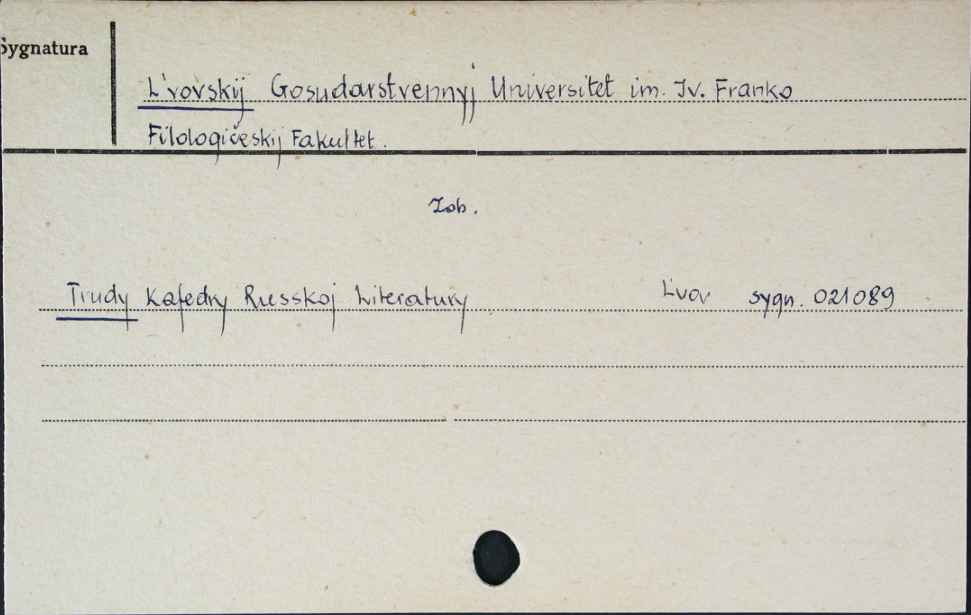 Sygnatura
L'vovskij Gosudarstvennyj Universitet im. Iv. Franko
Filologičeskij Fakultet.
Zob.
Trudy Kafedry Russkoj Literatury L'vov sygn. 021089